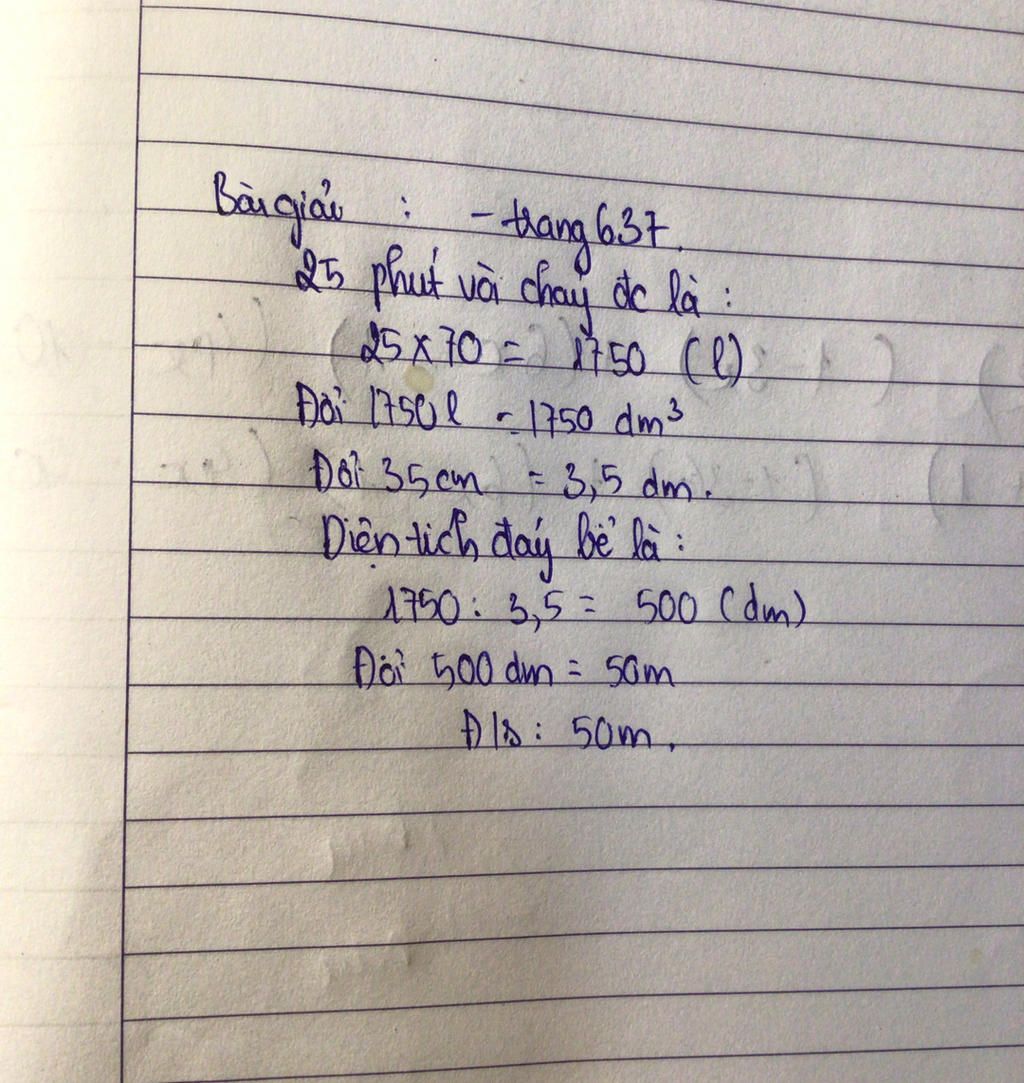 Bài giải : - trang 637.
25 phút vòi chảy đc là :
25 x 70 = 1750 (l)
Đổi 1750l = 1750 dm³
Đổi 35cm = 3,5 dm.
Diện tích đáy bể là :
1750 : 3,5 = 500 (dm)
Đổi 500 dm = 50m
Đ/s : 50m.